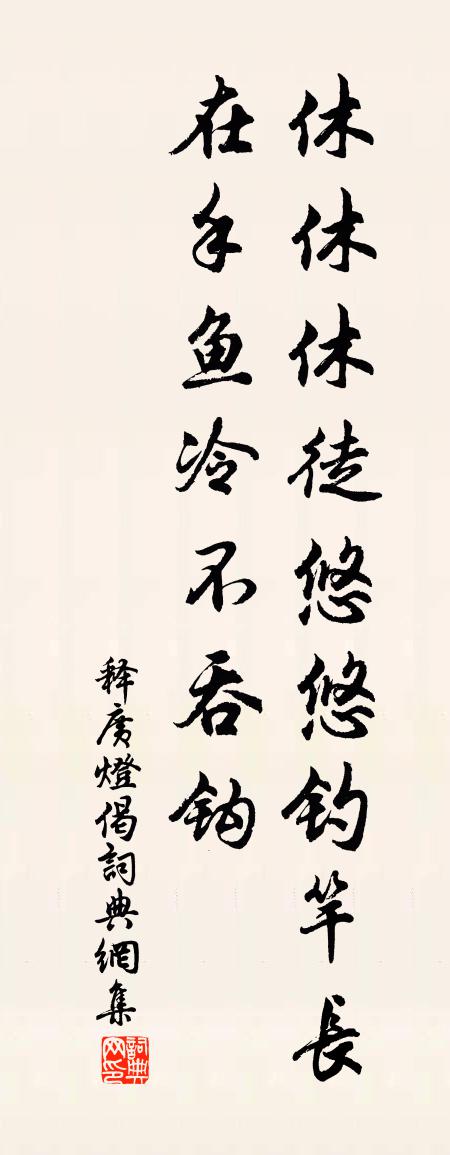 休休休徒悠悠钓竿長
在手鱼冷不吞钩
释廣燈偈詞典網集
詞典网印